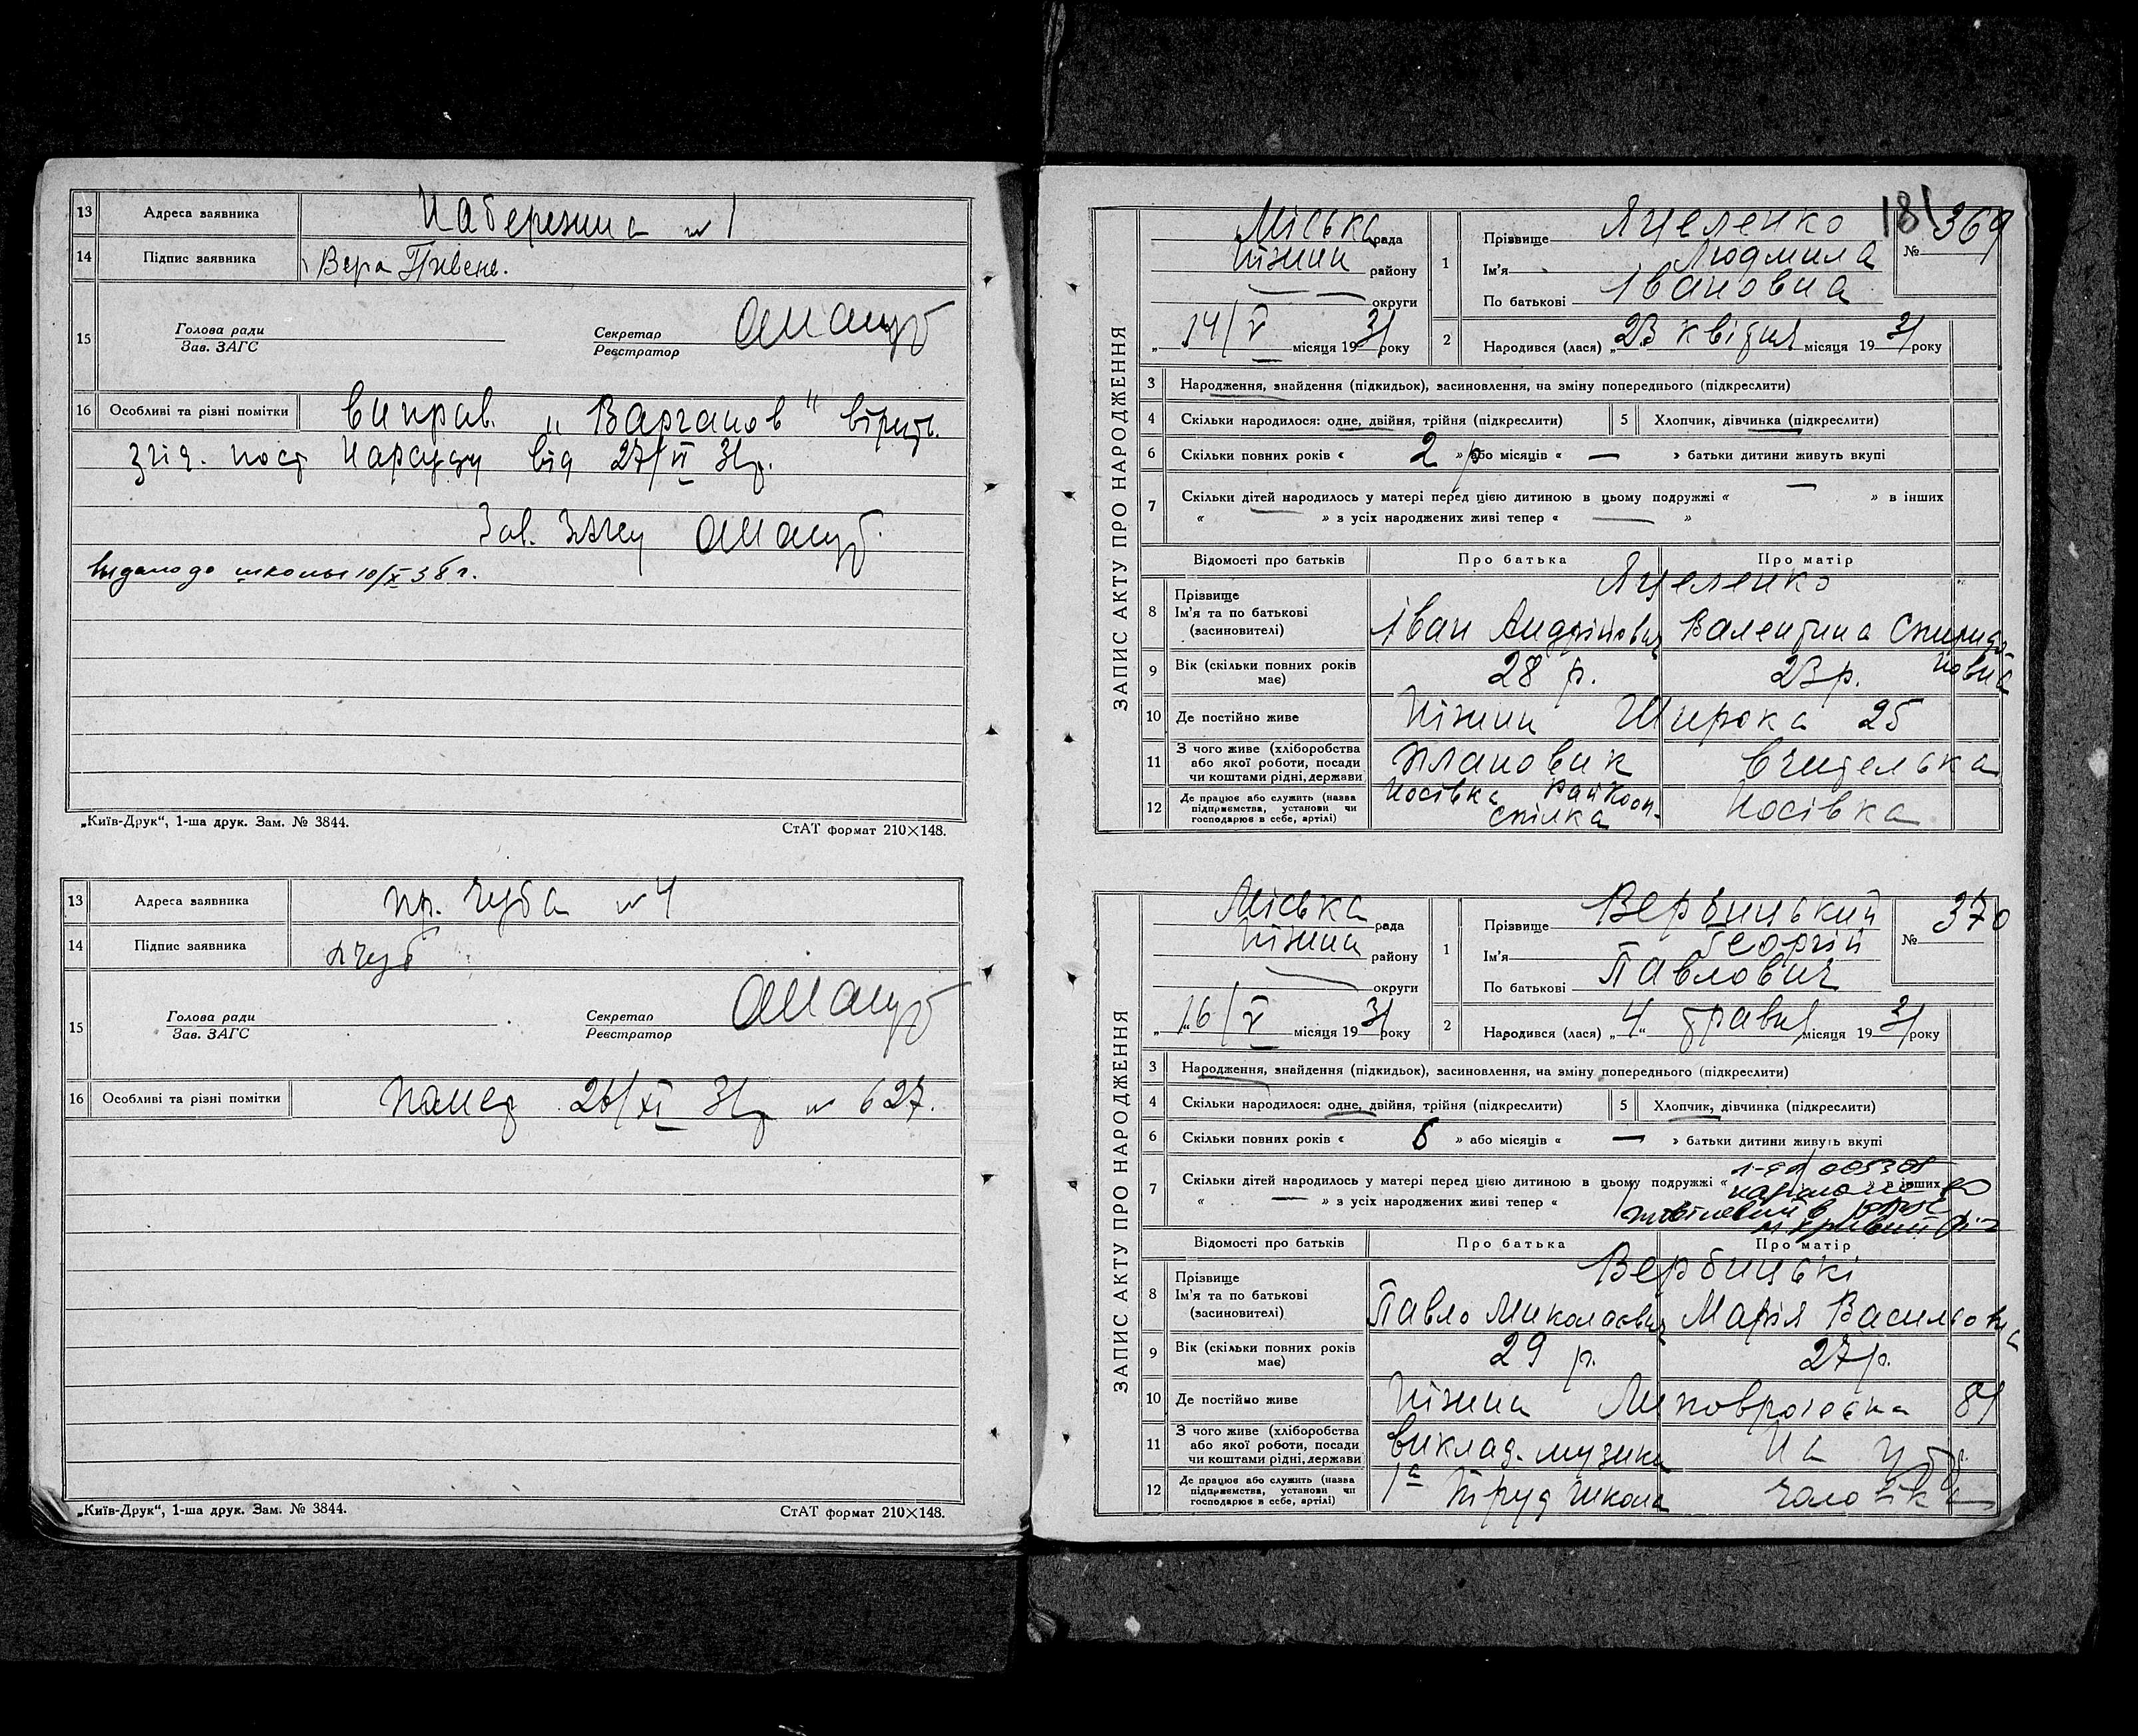 13 Адреса заявника Набережна № 1
14 Підпис заявника Вера Пивень.
15 Голова ради
Зав. ЗАГС
Секретар
Реєстратор
16 Особливі та різні помітки виправ. „Варганов“ вірить.
згід. пост Нарсуду від 27/VI 31 р.
Зав. ЗАГСу
Выдано до школы 10/X 38 г.
„Київ-Друк“, 1-ша друк. Зам. № 3844.
СтАТ формат 210×148.
13 Адреса заявника пр. Чуба № 4
14 Підпис заявника
15 Голова ради
Зав. ЗАГС
Секретар
Реєстратор
16 Особливі та різні помітки 31 р № 627.
„Київ-Друк“, 1-ша друк. Зам. № 3844.
СтАТ формат 210×148.
181
ЗАПИС АКТУ ПРО НАРОДЖЕННЯ
Міська рада
Ніжин району
округи
„ 14/V місяця 1931 року
1 Прізвище Яцеленко
Ім'я Людмила
По батькові Івановна
№ 369
2 Народився (лася) „23 квітня місяця 1931 року
3 Народження, знайдення (підкидьок), засиновлення, на зміну попереднього (підкреслити)
4 Скільки народилося: одне, двійня, трійня (підкреслити) 5 Хлопчик, дівчинка (підкреслити)
6 Скільки повних років « 2 р » або місяців « — » батьки дитини живуть вкупі
7 Скільки дітей народилось у матері перед цією дитиною в цьому подружжі « — » в інших
« — » з усіх народжених живі тепер « — »
Відомості про батьків Про батька Про матір
8 Прізвище Яцеленко
Ім'я та по батькові Іван Андрійович Валентина Спиридоновна
(засиновителі)
9 Вік (скільки повних років має) 28 р. 23 р.
10 Де постійно живе Ніжин Широка 25
11 З чого живе (хліборобства або якої роботи, посади чи коштами рідні, держави плановик вчителька
12 Де працює або служить (назва підприємства, установи чи господарює в себе, артілі) Носівка Райкоопспілка Носівка
ЗАПИС АКТУ ПРО НАРОДЖЕННЯ
Міська рада
Ніжин району
округи
„ 16/V місяця 1931 року
1 Прізвище Вербицький
Ім'я Георгій
По батькові Павлович
№ 370
2 Народився (лася) „4“ травня місяця 1931 року
3 Народження, знайдення (підкидьок), засиновлення, на зміну попереднього (підкреслити)
4 Скільки народилося: одне, двійня, трійня (підкреслити) 5 Хлопчик, дівчинка (підкреслити)
6 Скільки повних років « 5 » або місяців « — » батьки дитини живуть вкупі
7 Скільки дітей народилось у матері перед цією дитиною в цьому подружжі « » в інших
« — » з усіх народжених живі тепер «
Відомості про батьків Про батька Про матір
8 Прізвище Вербицькі
Ім'я та по батькові Павло Миколаович Марія Васильовна
(засиновителі)
9 Вік (скільки повних років має) 29 р. 27 р.
10 Де постійно живе Ніжин
11 З чого живе (хліборобства або якої роботи, посади чи коштами рідні, держави виклад. музики на утр.
12 Де працює або служить (назва підприємства, установи чи господарює в себе, артілі) 1а труд школа чоловіка